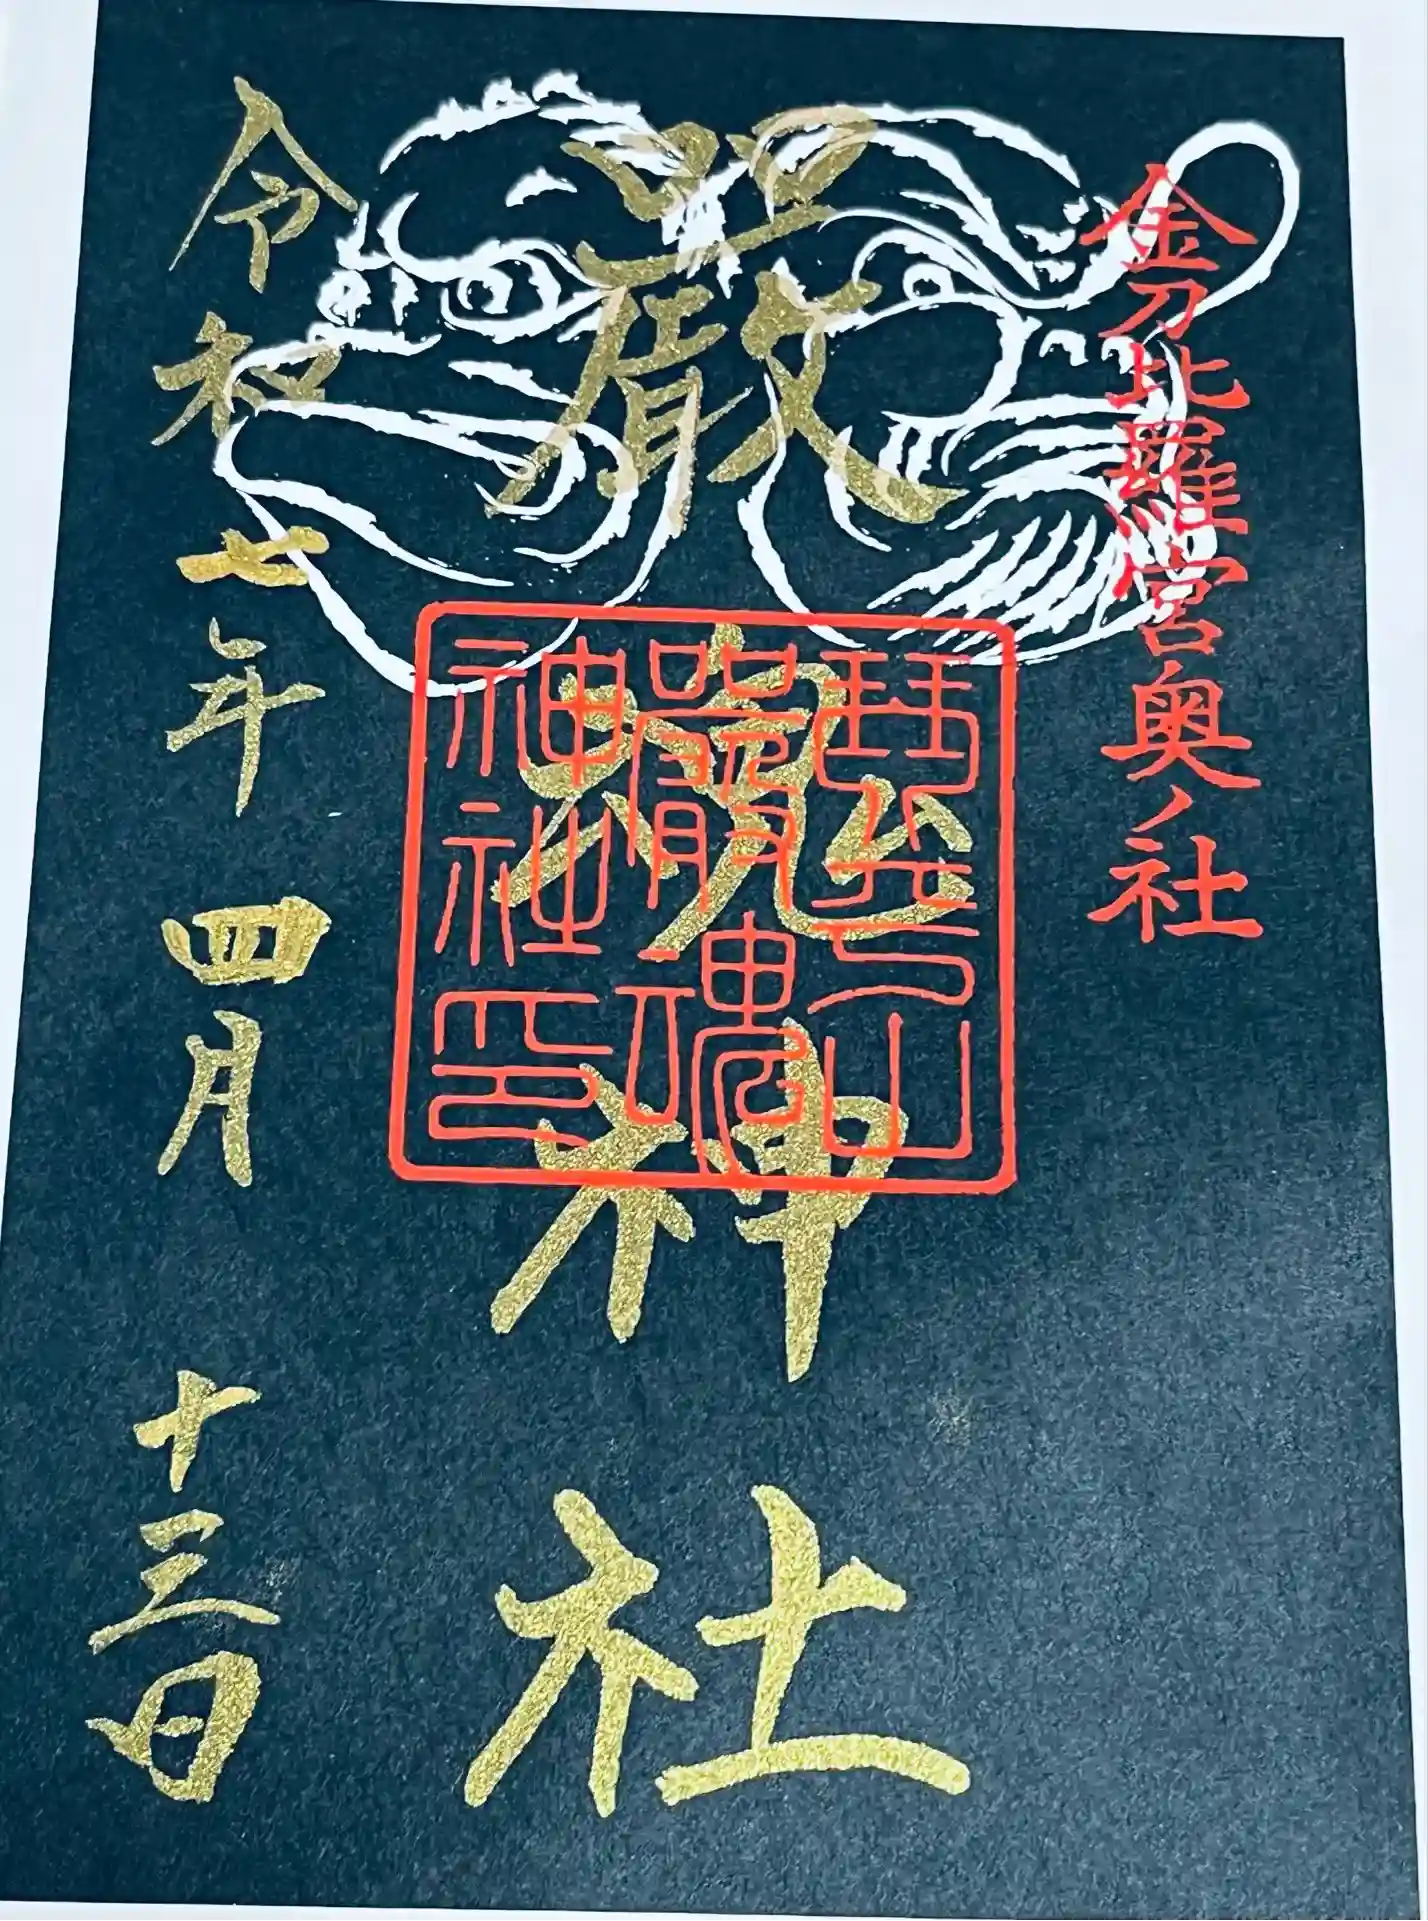 金刀比羅宮奥ノ社
嚴魂神社
琴平山
嚴魂
神社印
令和七年四月十三日